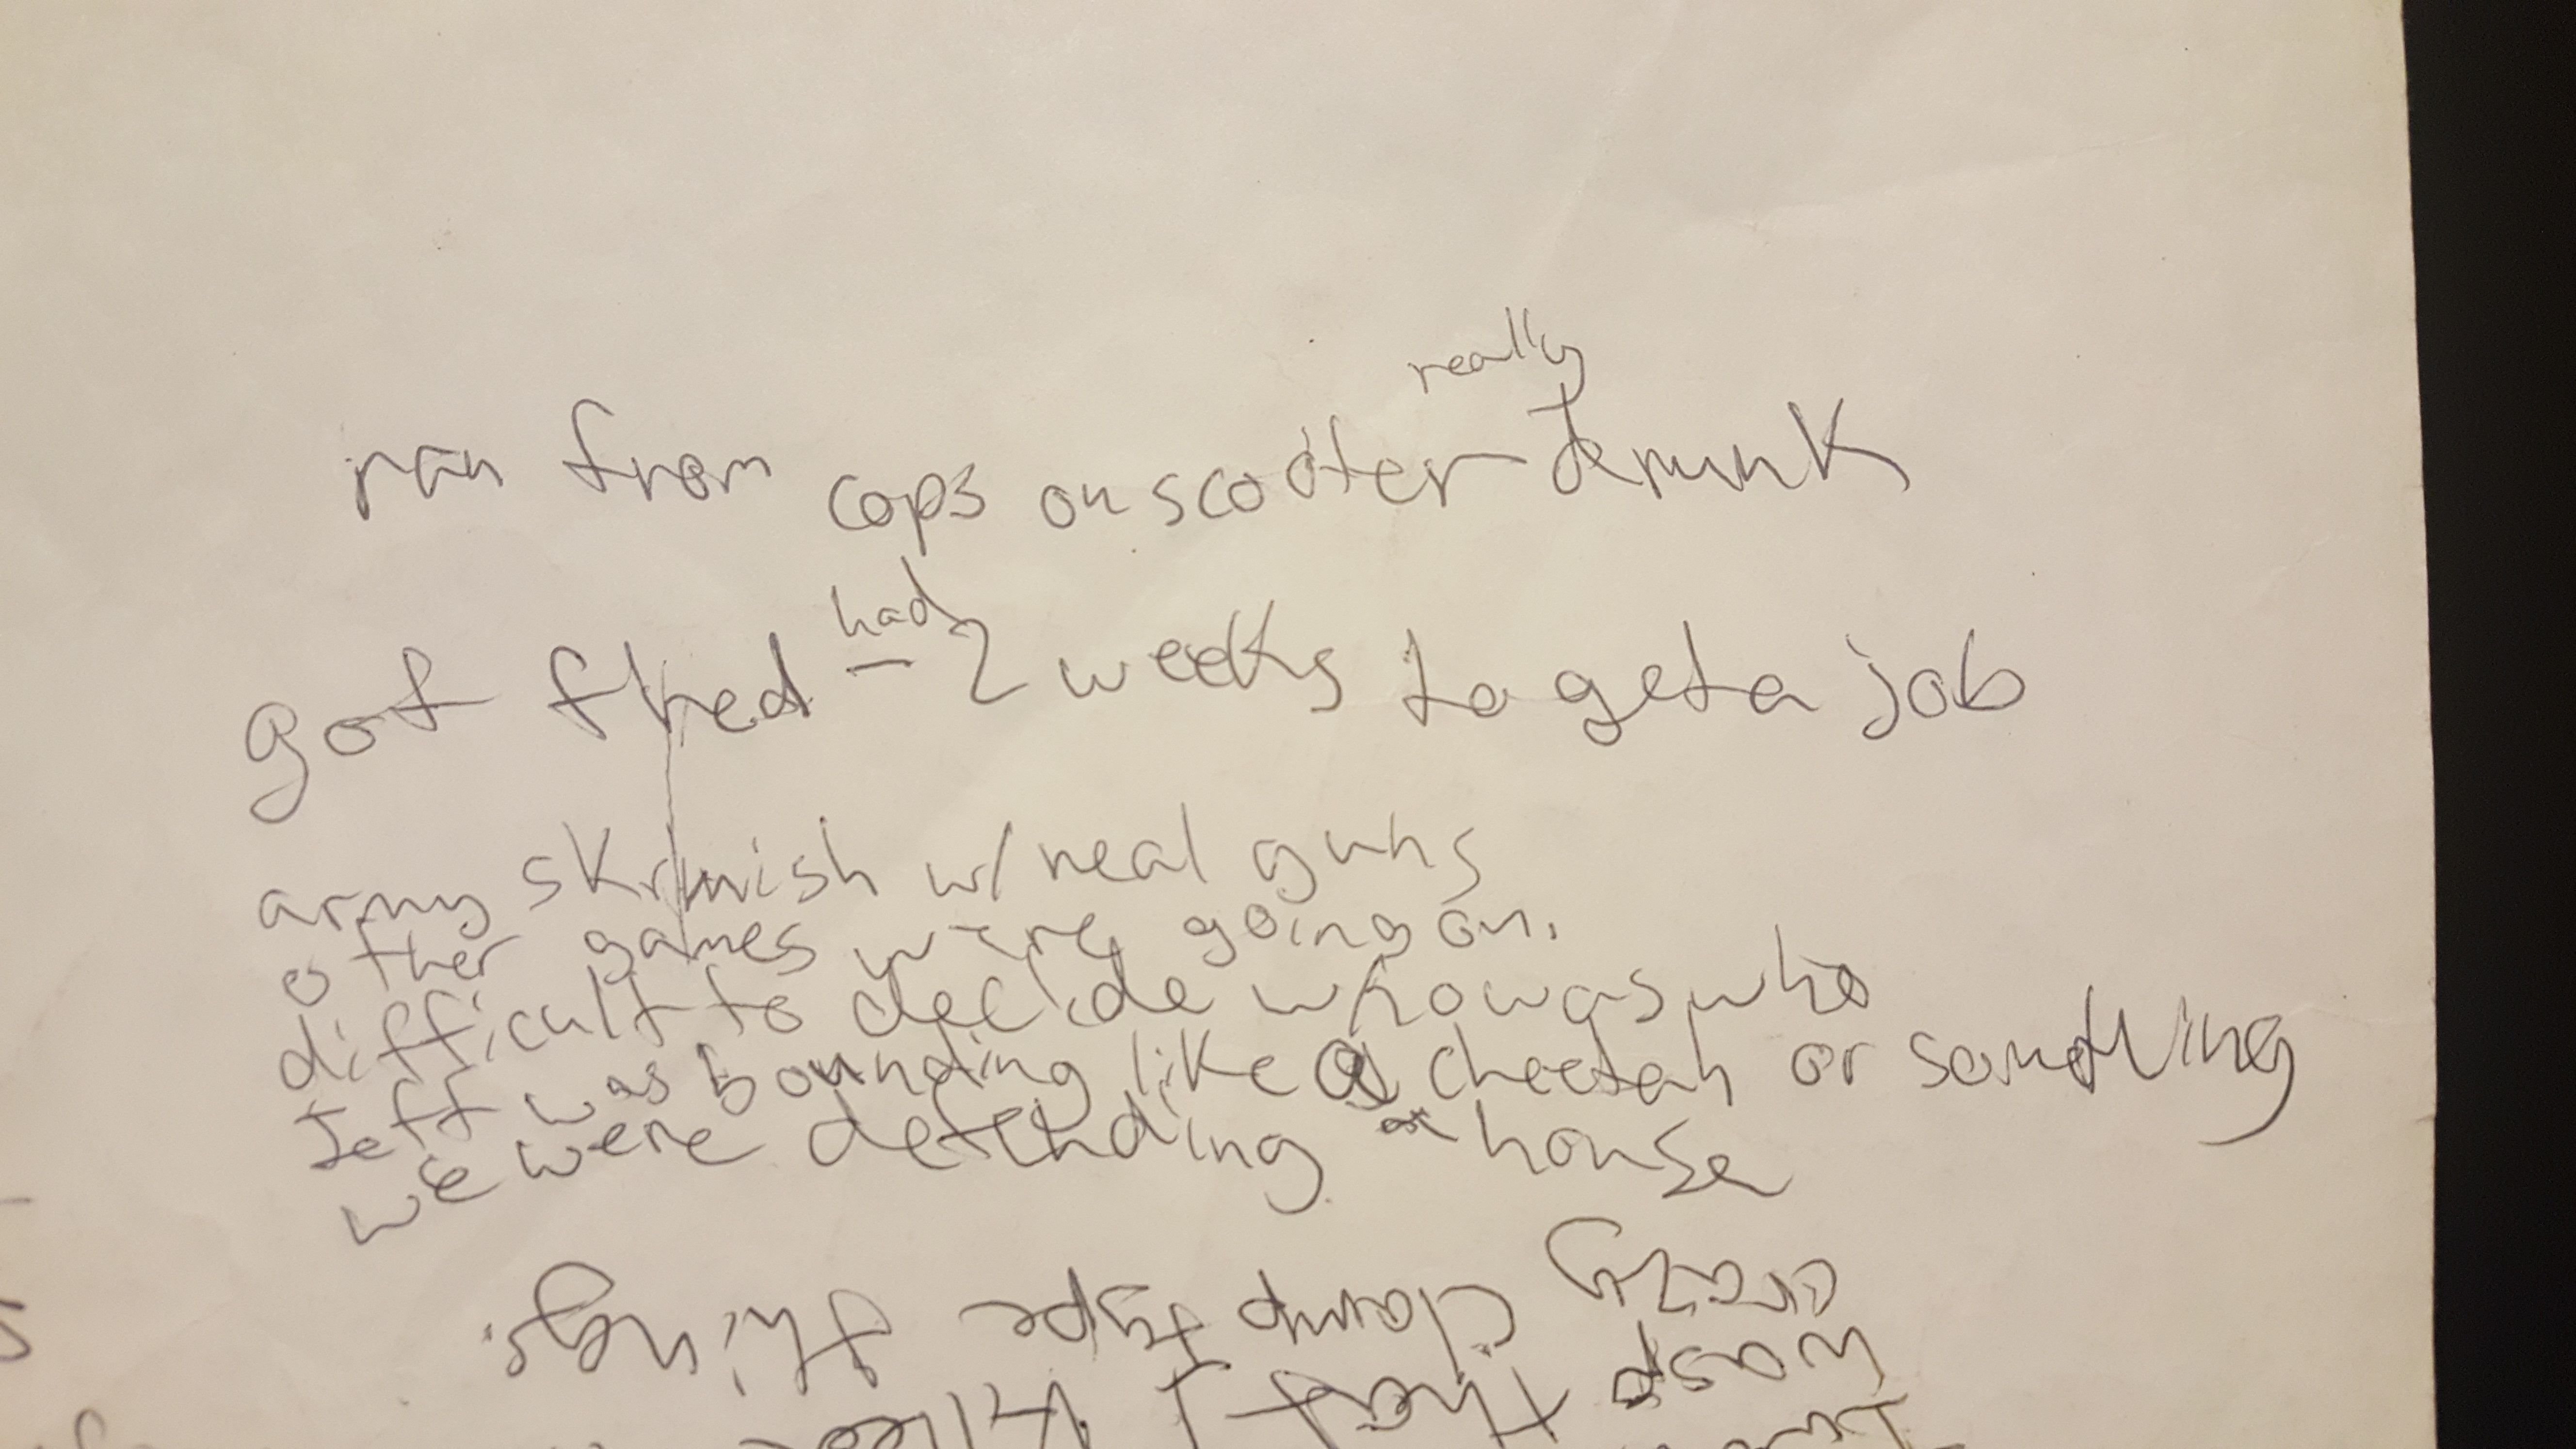 ran from cops on scooter really drunk
got fired - had 2 weeks to get a job
army skrmish w/ real guns
other games were going on.
difficult to decide who was who
Jeff was bounding like a cheetah or something
we were defending a house
wasp that I killed
crazy clamp type things.